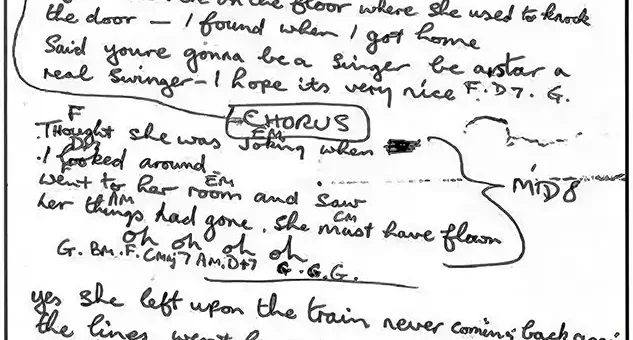 on the floor where she used to knock
the door – I found when I got home
Said youre gonna be a singer be a star a
real swinger – I hope its very nice F. D7. G.
CHORUS
F
Thought she was joking when
EM
I looked around
went to her room and saw
EM
her things had gone. She must have flown
AM CM
MID 8
oh oh oh oh
G. BM. F. CMaj7 AM. D+7 G. G. G.
yes she left upon the train never coming back again
the lines went